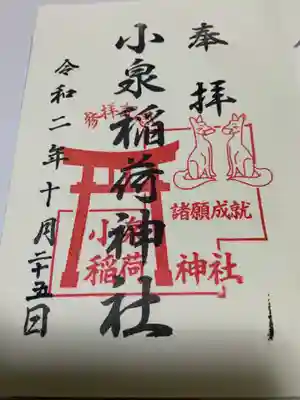 奉拝
小泉稲荷神社
令和二年十月二十五日
参拝
諸願成就
小泉
稲荷神社